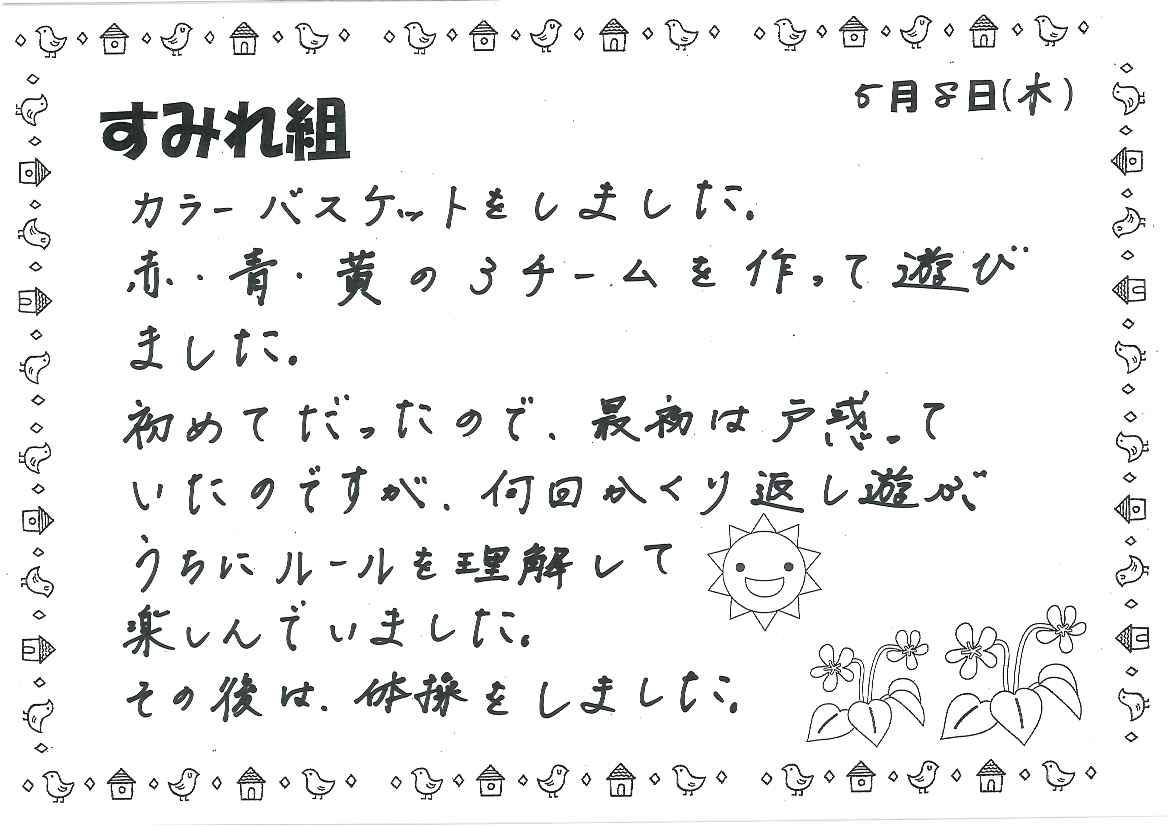 5月8日(木)
すみれ組
カラーバスケットをしました。
赤・青・黄の3チームを作って遊び
ました。
初めてだったので、最初は戸惑って
いたのですが、何回かくり返し遊ぶ
うちにルールを理解して
楽しんでいました。
その後は、体操をしました。